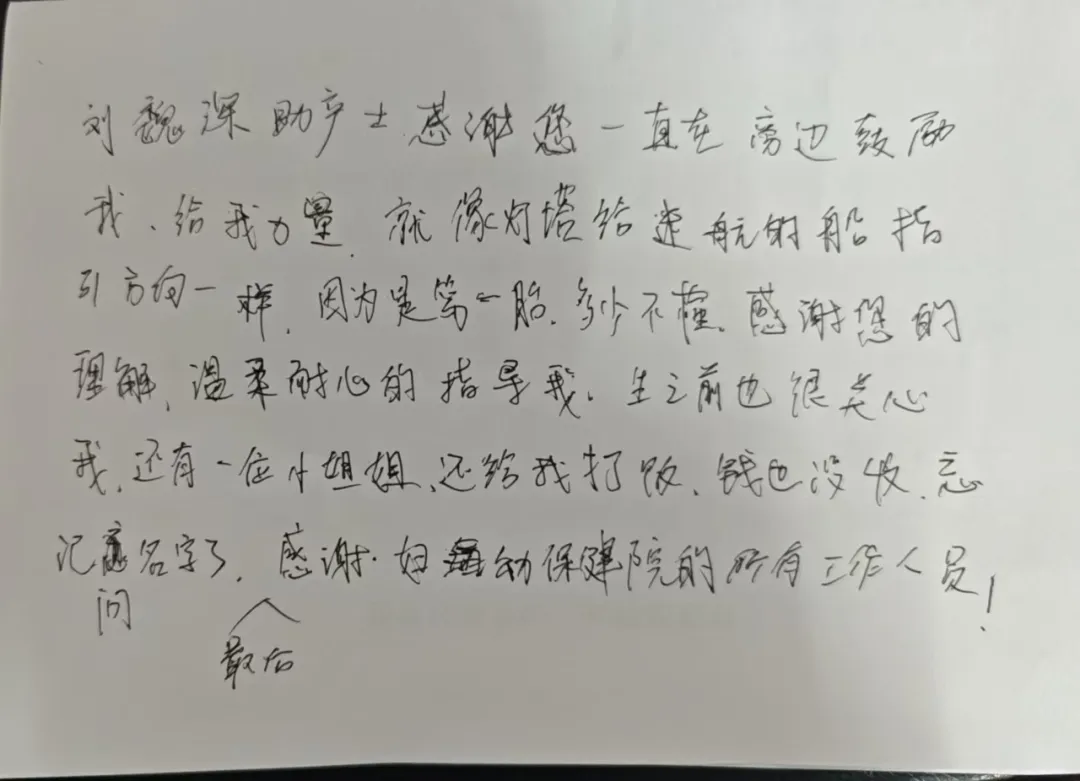 刘魏深助产士感谢您一直在旁边鼓励
我、给我力量,就像灯塔给迷航的船指
引方向一样,因为是第一胎、多少不懂,感谢您的
理解,温柔耐心的指导我、生之前也很关心
我,还有一位小姐姐、还给我打饭、钱也没收、忘
记问名字了,最后感谢妇幼保健院的所有工作人员!